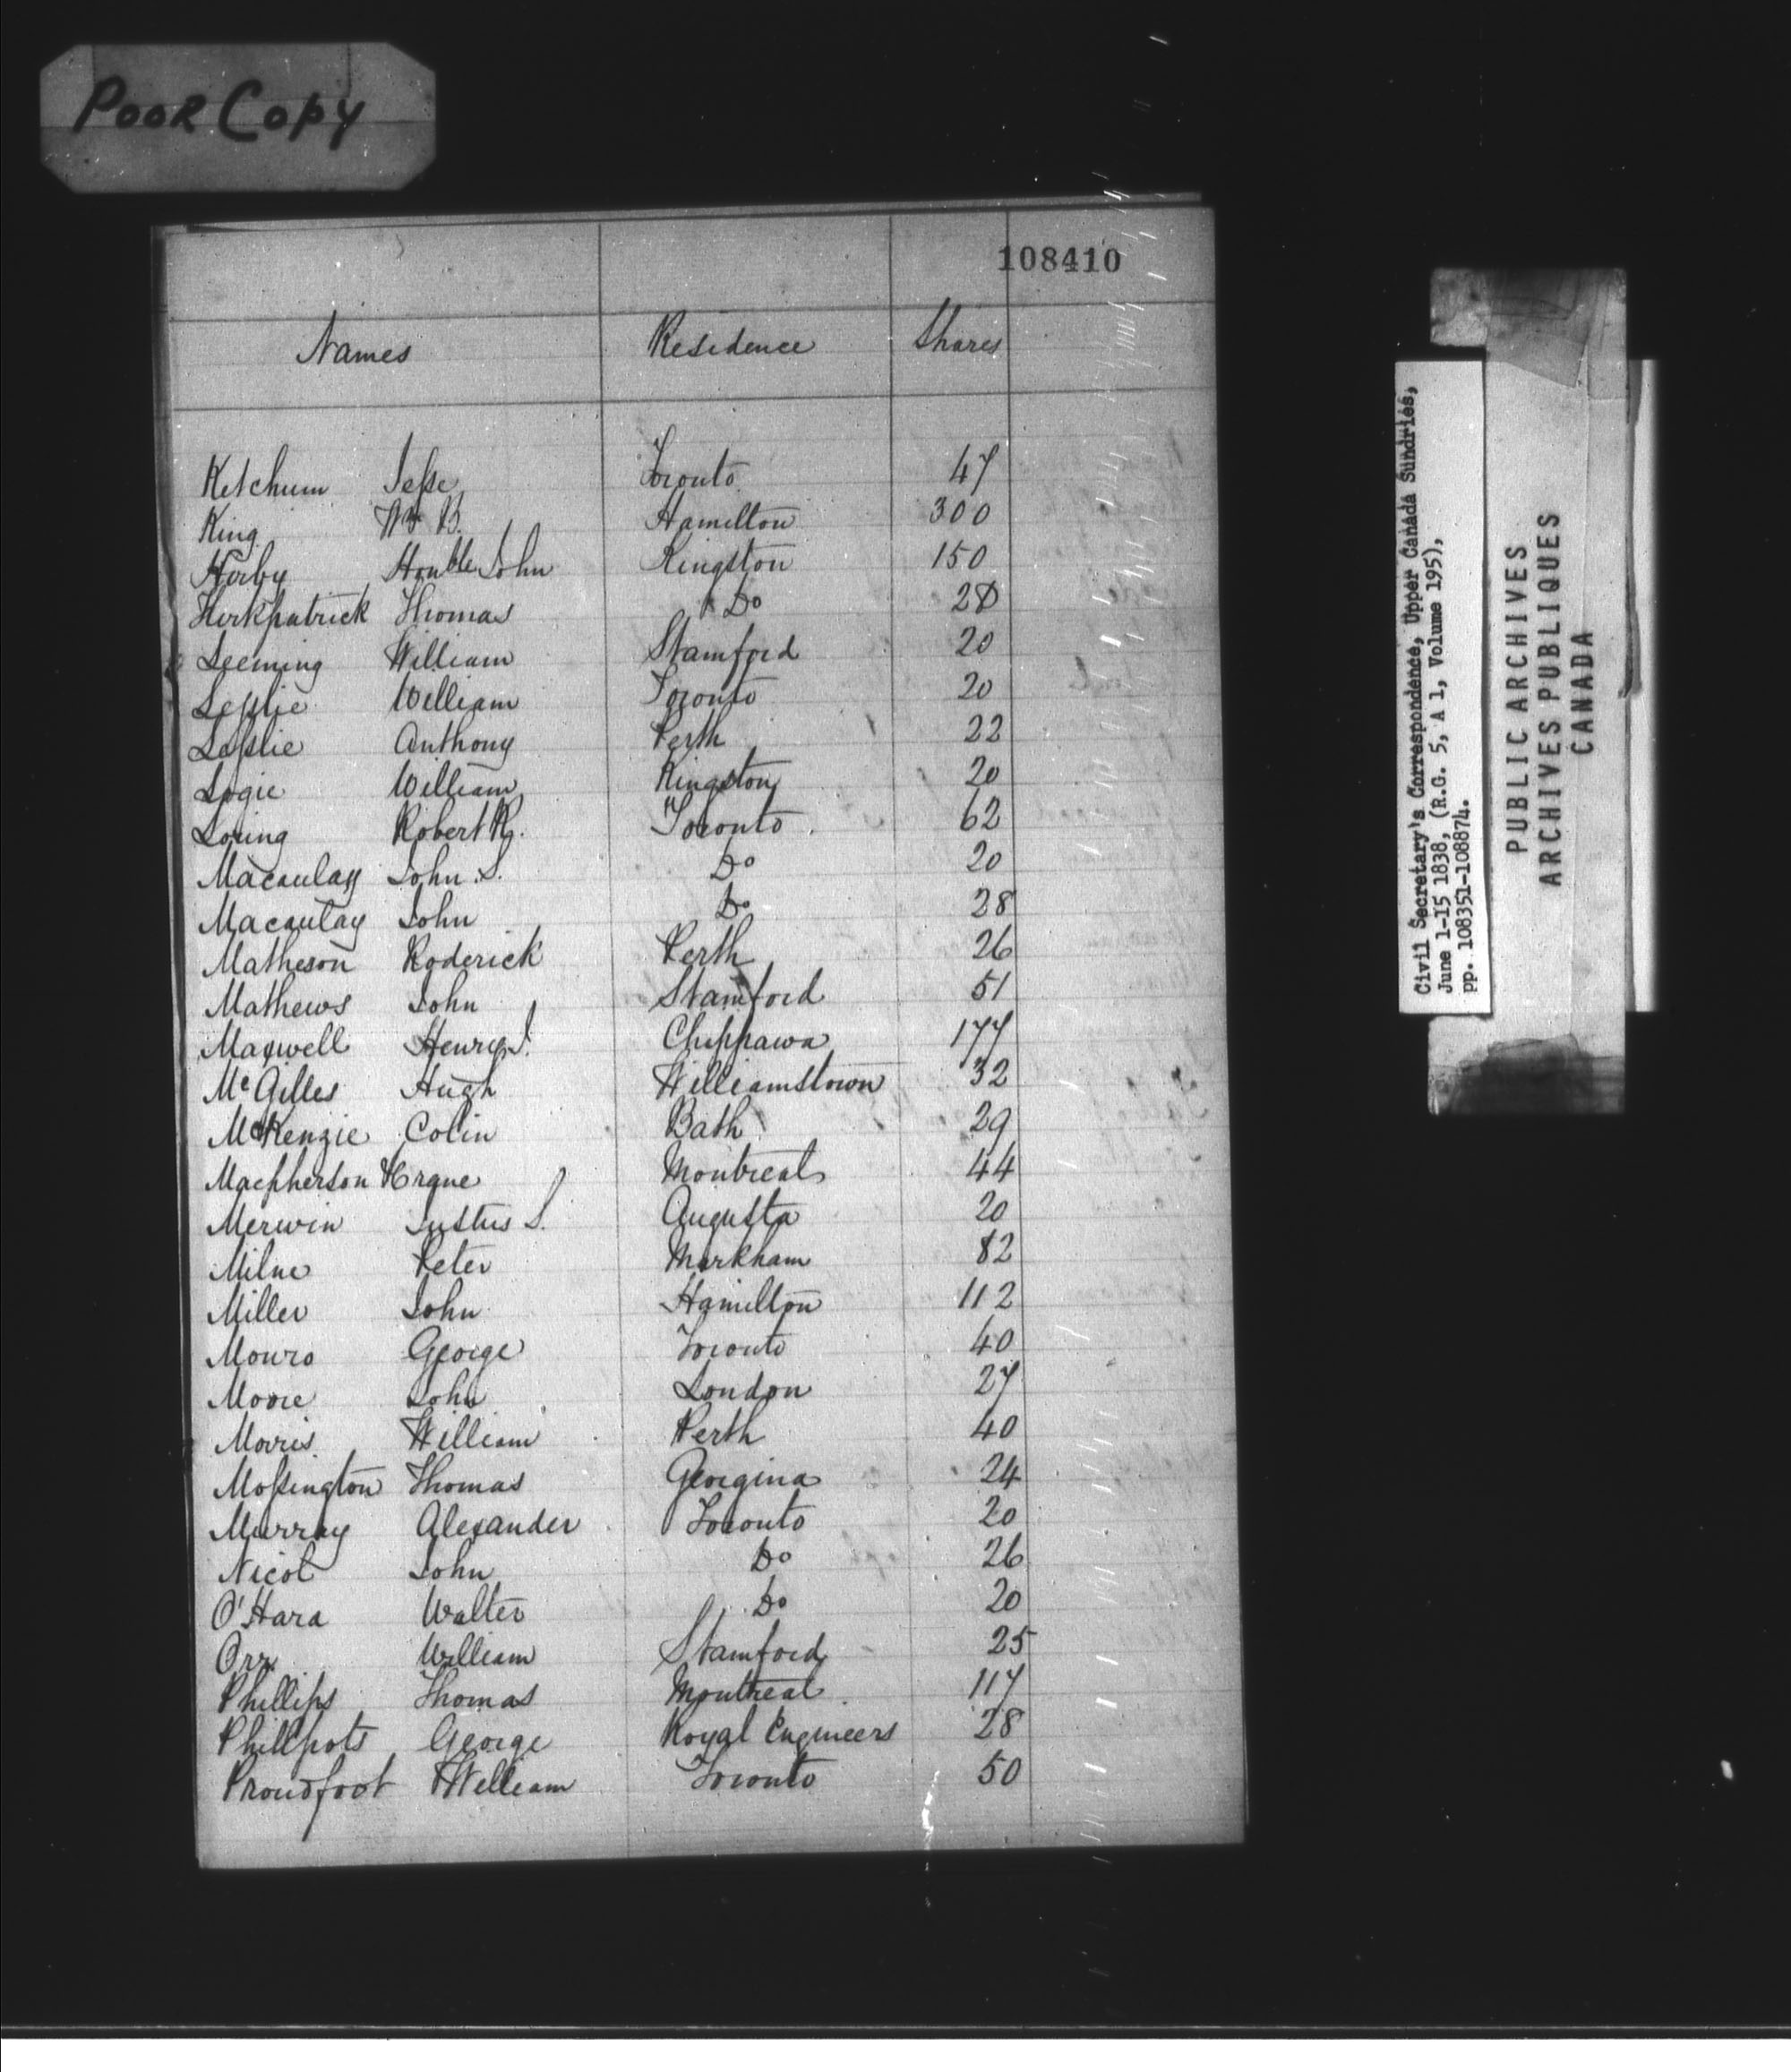 Poor Copy
108410
Names Residence Shares
Ketchum Jesse Toronto 47
King Wm B. Hamilton 300
Kirby Honble John Kingston 150
Kirkpatrick Thomas Do 28
Leeming William Stamford 20
Leslie William Toronto 20
Leslie Anthony Perth 22
Logie William Kingston 20
Loring Robert R. Toronto 62
Macaulay John S. Do 20
Macaulay John Do 28
Matheson Roderick Perth 26
Mathews John Stamford 51
Maxwell Henry J. Chippawa 177
McGilles Hugh Williamstown 32
McKenzie Colin Bath 29
Macpherson Montreal 44
Merwin Justus S. Augusta 20
Milne Peter Markham 82
Miller John Hamilton 112
Monro George Toronto 40
Moore John London 27
Morris William Perth 40
Mossington Thomas Georgina 24
Murray Alexander Toronto 20
Nicol John Do 26
O'Hara Walter Do 20
Orr William Stamford 25
Phillips Thomas Montreal 117
Phillpots George Royal Engineers 28
Proudfoot William Toronto 50
Civil Secretary's Correspondence, Upper Canada Sundries,
June 1-15 1838, (R.G. 5, A 1, Volume 195),
pp. 108351-108874.
PUBLIC ARCHIVES
ARCHIVES PUBLIQUES
CANADA